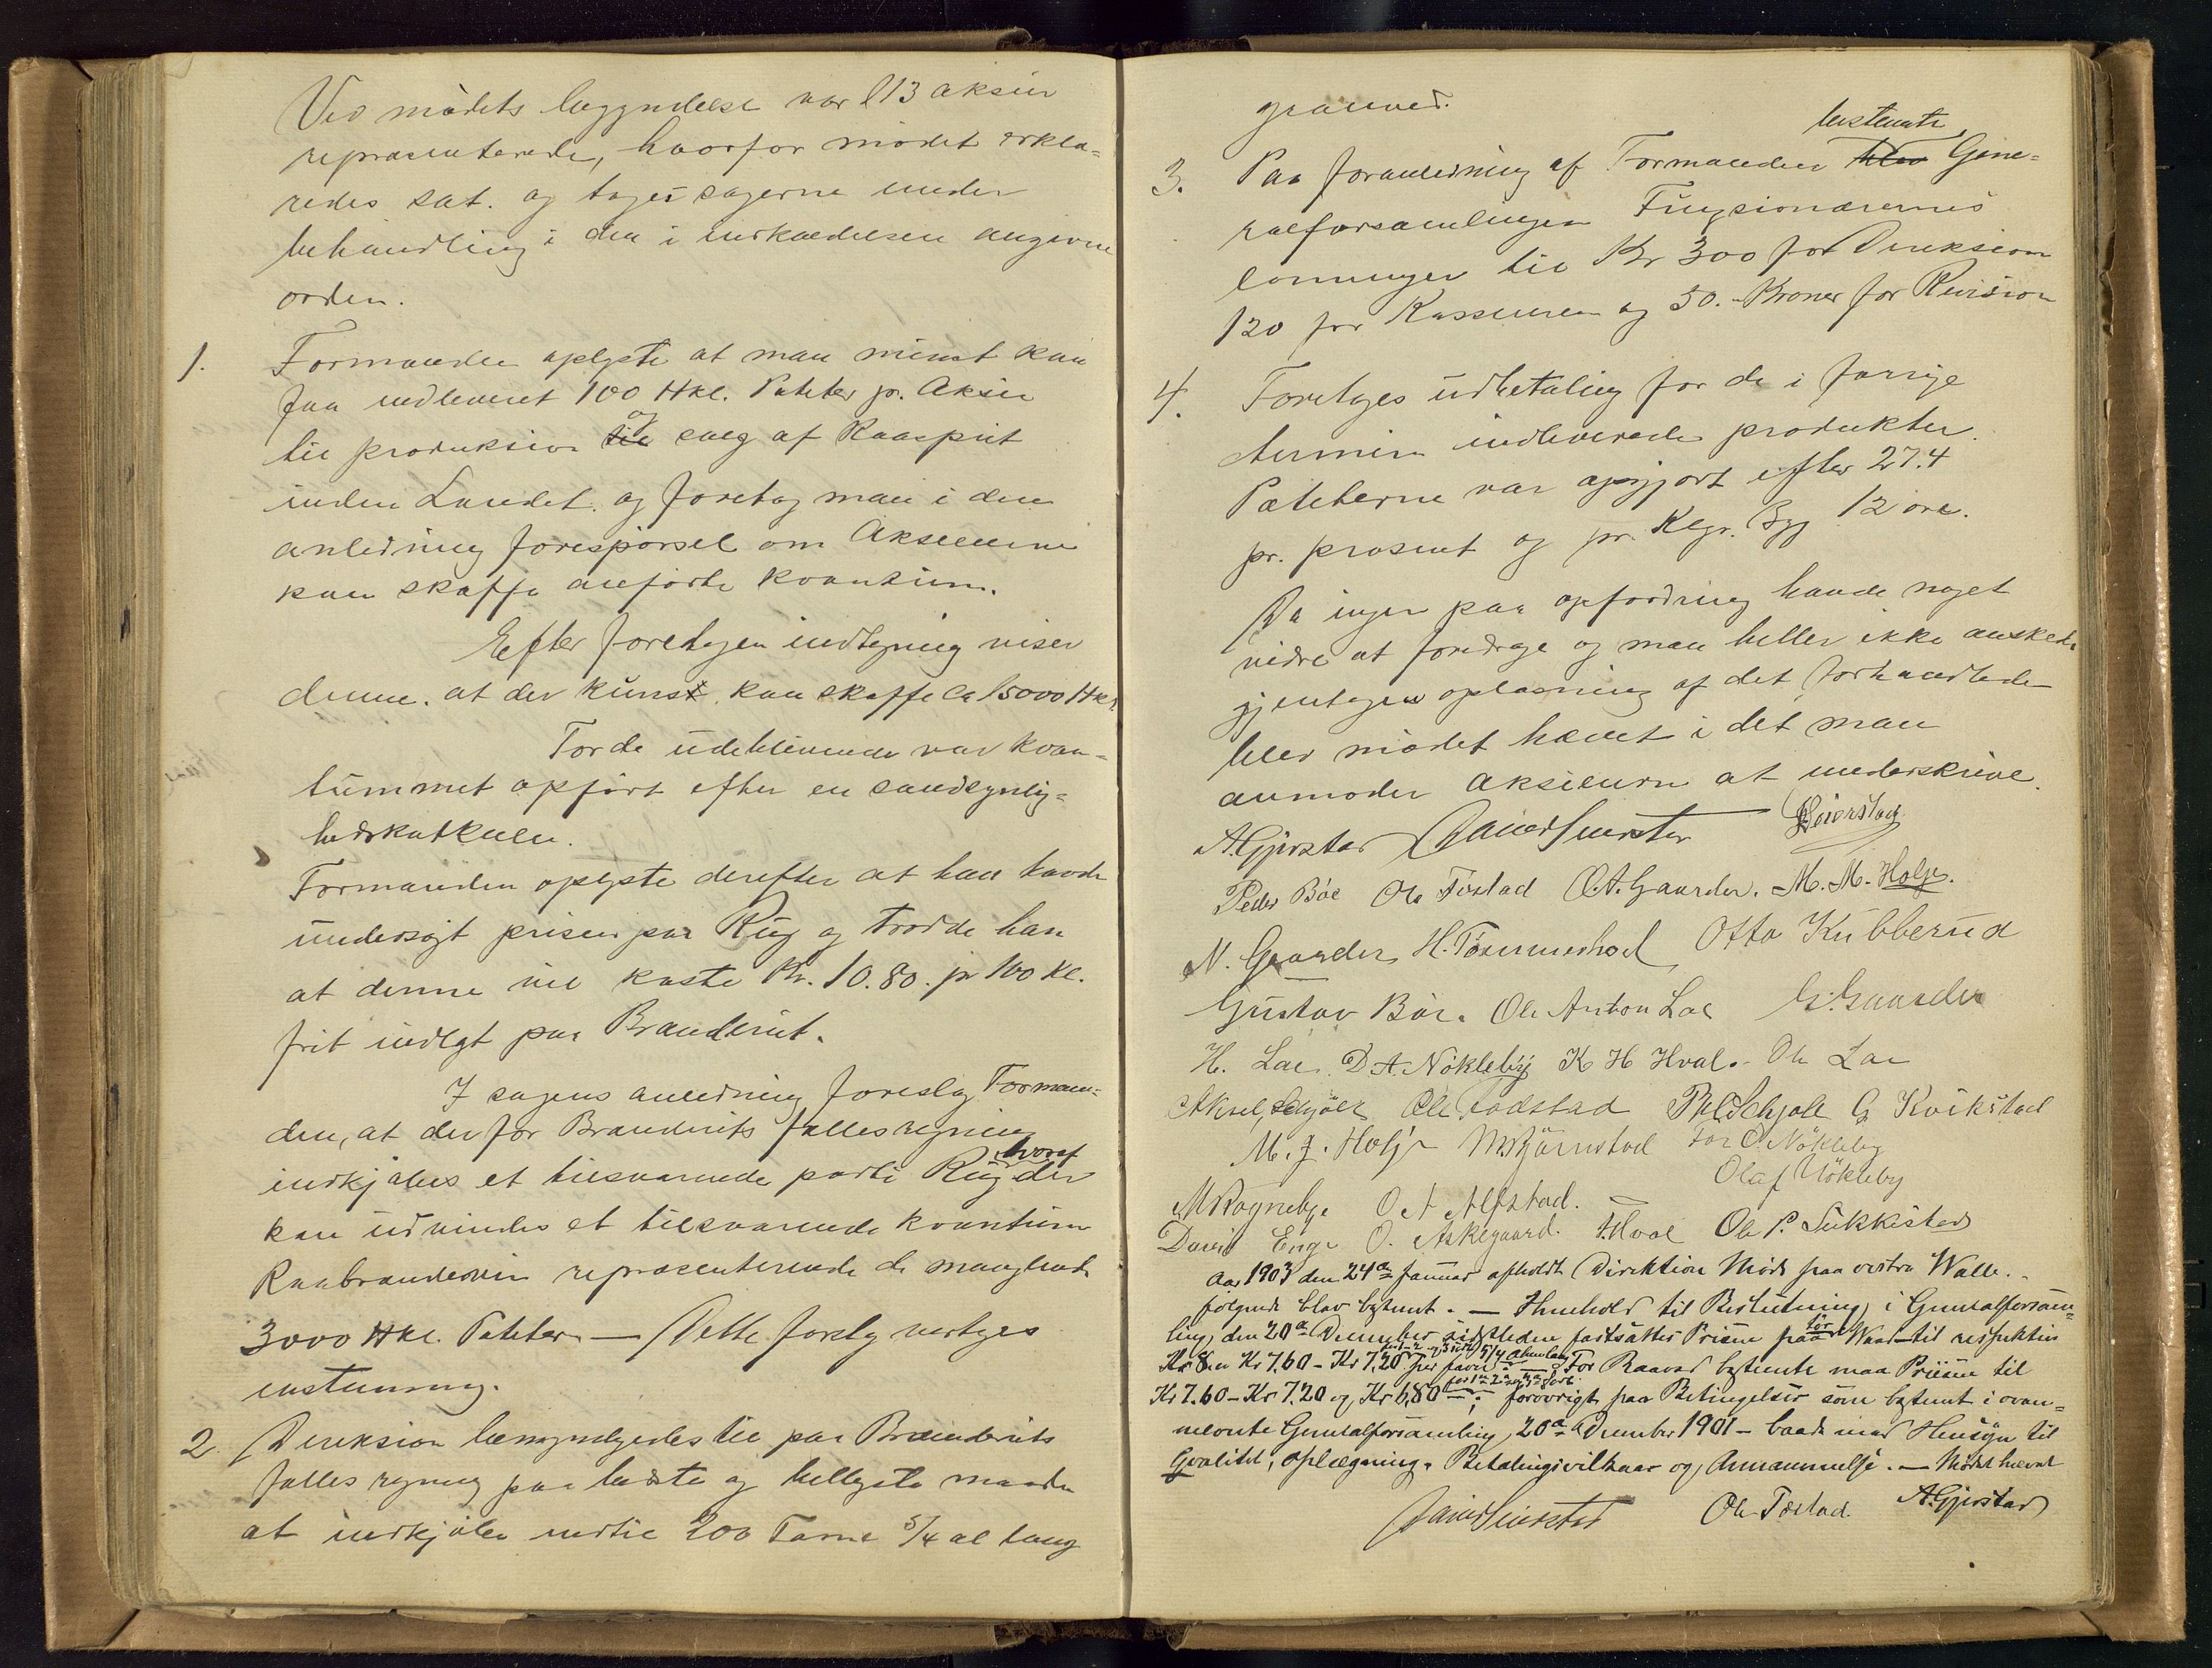 Ved mødets begyndelse var 113 aksier
repræsenterede, hvorfor mødet erklæ=
redes sat. og toges sagerne under
behandling i den i indkaldelsen angivne
orden.
1. Formanden oplyste at man minst kan
faa indleveret 100 Hkl. Poteter pr. Aksie
til produksion til og salg af Raasprit
inden Landet. og foretog man i den
anledning forespørsel om Aksieeierne
kan skaffe anførte kvantum.
Efter foretagen indtegning viser
denne. at der kuns kan skaffe ca 15000 Hkl.
For de udeblivende var kvan=
tummet opført efter en sandsynlig=
hedskalkule.
Formanden oplyste derefter at han havde
undersøgt prisen paa Rug og trodde han
at denne vil koste Kr. 10.80. pr 100 Kl.
frit indlagt paa Brænderiet.
I sagens anledning foreslog Forman=
den, at der for Brænderiets fælles regning
hvoraf
indkjøbes et tilsvarende parti Rug der
kan udvindes et tilsvarende kvantum
Raabrændevin repræsenterende de manglende
3000 Hkl. Poteter — Dette forslag vedtoges
enstemmig.
2. Direksion bemyndigedes til paa Brænderiets
fælles regning paa bedste og billigste maade
at indkjøbe indtil 200 Favne 5/4 al lang
granved.
bestemte
3. Paa foranledning af Formanden blev Gene=
ralforsamlingen Fungsionærernes
lønninger til Kr 300 for Direksion
120 for Kassereren og 50. Kroner for Revision
4. Foretoges udbetaling for de i forrige
termin indleverede produkter.
Poteterne var opgjort efter 27.4
pr. prosent og pr. Klgr. Byg 12 øre.
Da ingen paa opfordring havde noget
vidre at foredrage og man heller ikke ønskede
gjentagen oplæsning af det forhandlede
blev mødet hævet i det man
anmoder aksieeiern at underskrive.
A. Gjerstad David Seierstad Seierstad
Peder Bøe Ole Tøstad O.A. Gaarder. M. M. Holje.
N. Gaarder H. Tømmerhol Otto Kubberud
Gustav Bøe. Ole Anton Lae G. Gaarder
H. Lae D. A. Nökleby K H Hval. Ole Lae
Aksel Schjöll Ole Fodstad P. Schjoll G Kvikstad
M. J. Holje M. Bjørnstad For O. Nökleby
Olaf Nökleby
M Rognebye O A Alfstad.
David Enge O. Askegaard. T. Hval Ole P. Sukkestad
Aar 1903 den 24de Januar afholdt Direktion Møde paa vestre Walle.
følgende blev bestemt. — I henhold til Beslutning i Generalforsam=
for
ling, den 20de December sidstleden fastsattes Prisene paa Ved til respektive
Kr 8. Kr 7.60 - Kr 7.20 per favn 5/4 Alen lang — For Raaved bestemte man Prisene til
for 1ste 2den og 3de Sort.
Kr 7.60 - Kr 7.20 og Kr 6,80 —; forøvrigt paa Betingelser som bestemt i oven=
nævnte Generalforsamling, 20de December 1901 - baade med Hensyn til
Qvalitet, Oplægning, Betalingsvilkaar og Anmammelse. — Mødet hævet
David Seierstad Ole Tøstad. A. Gjerstad